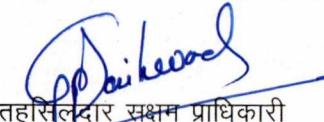 तहसिलदार सक्षम प्राधिकारी